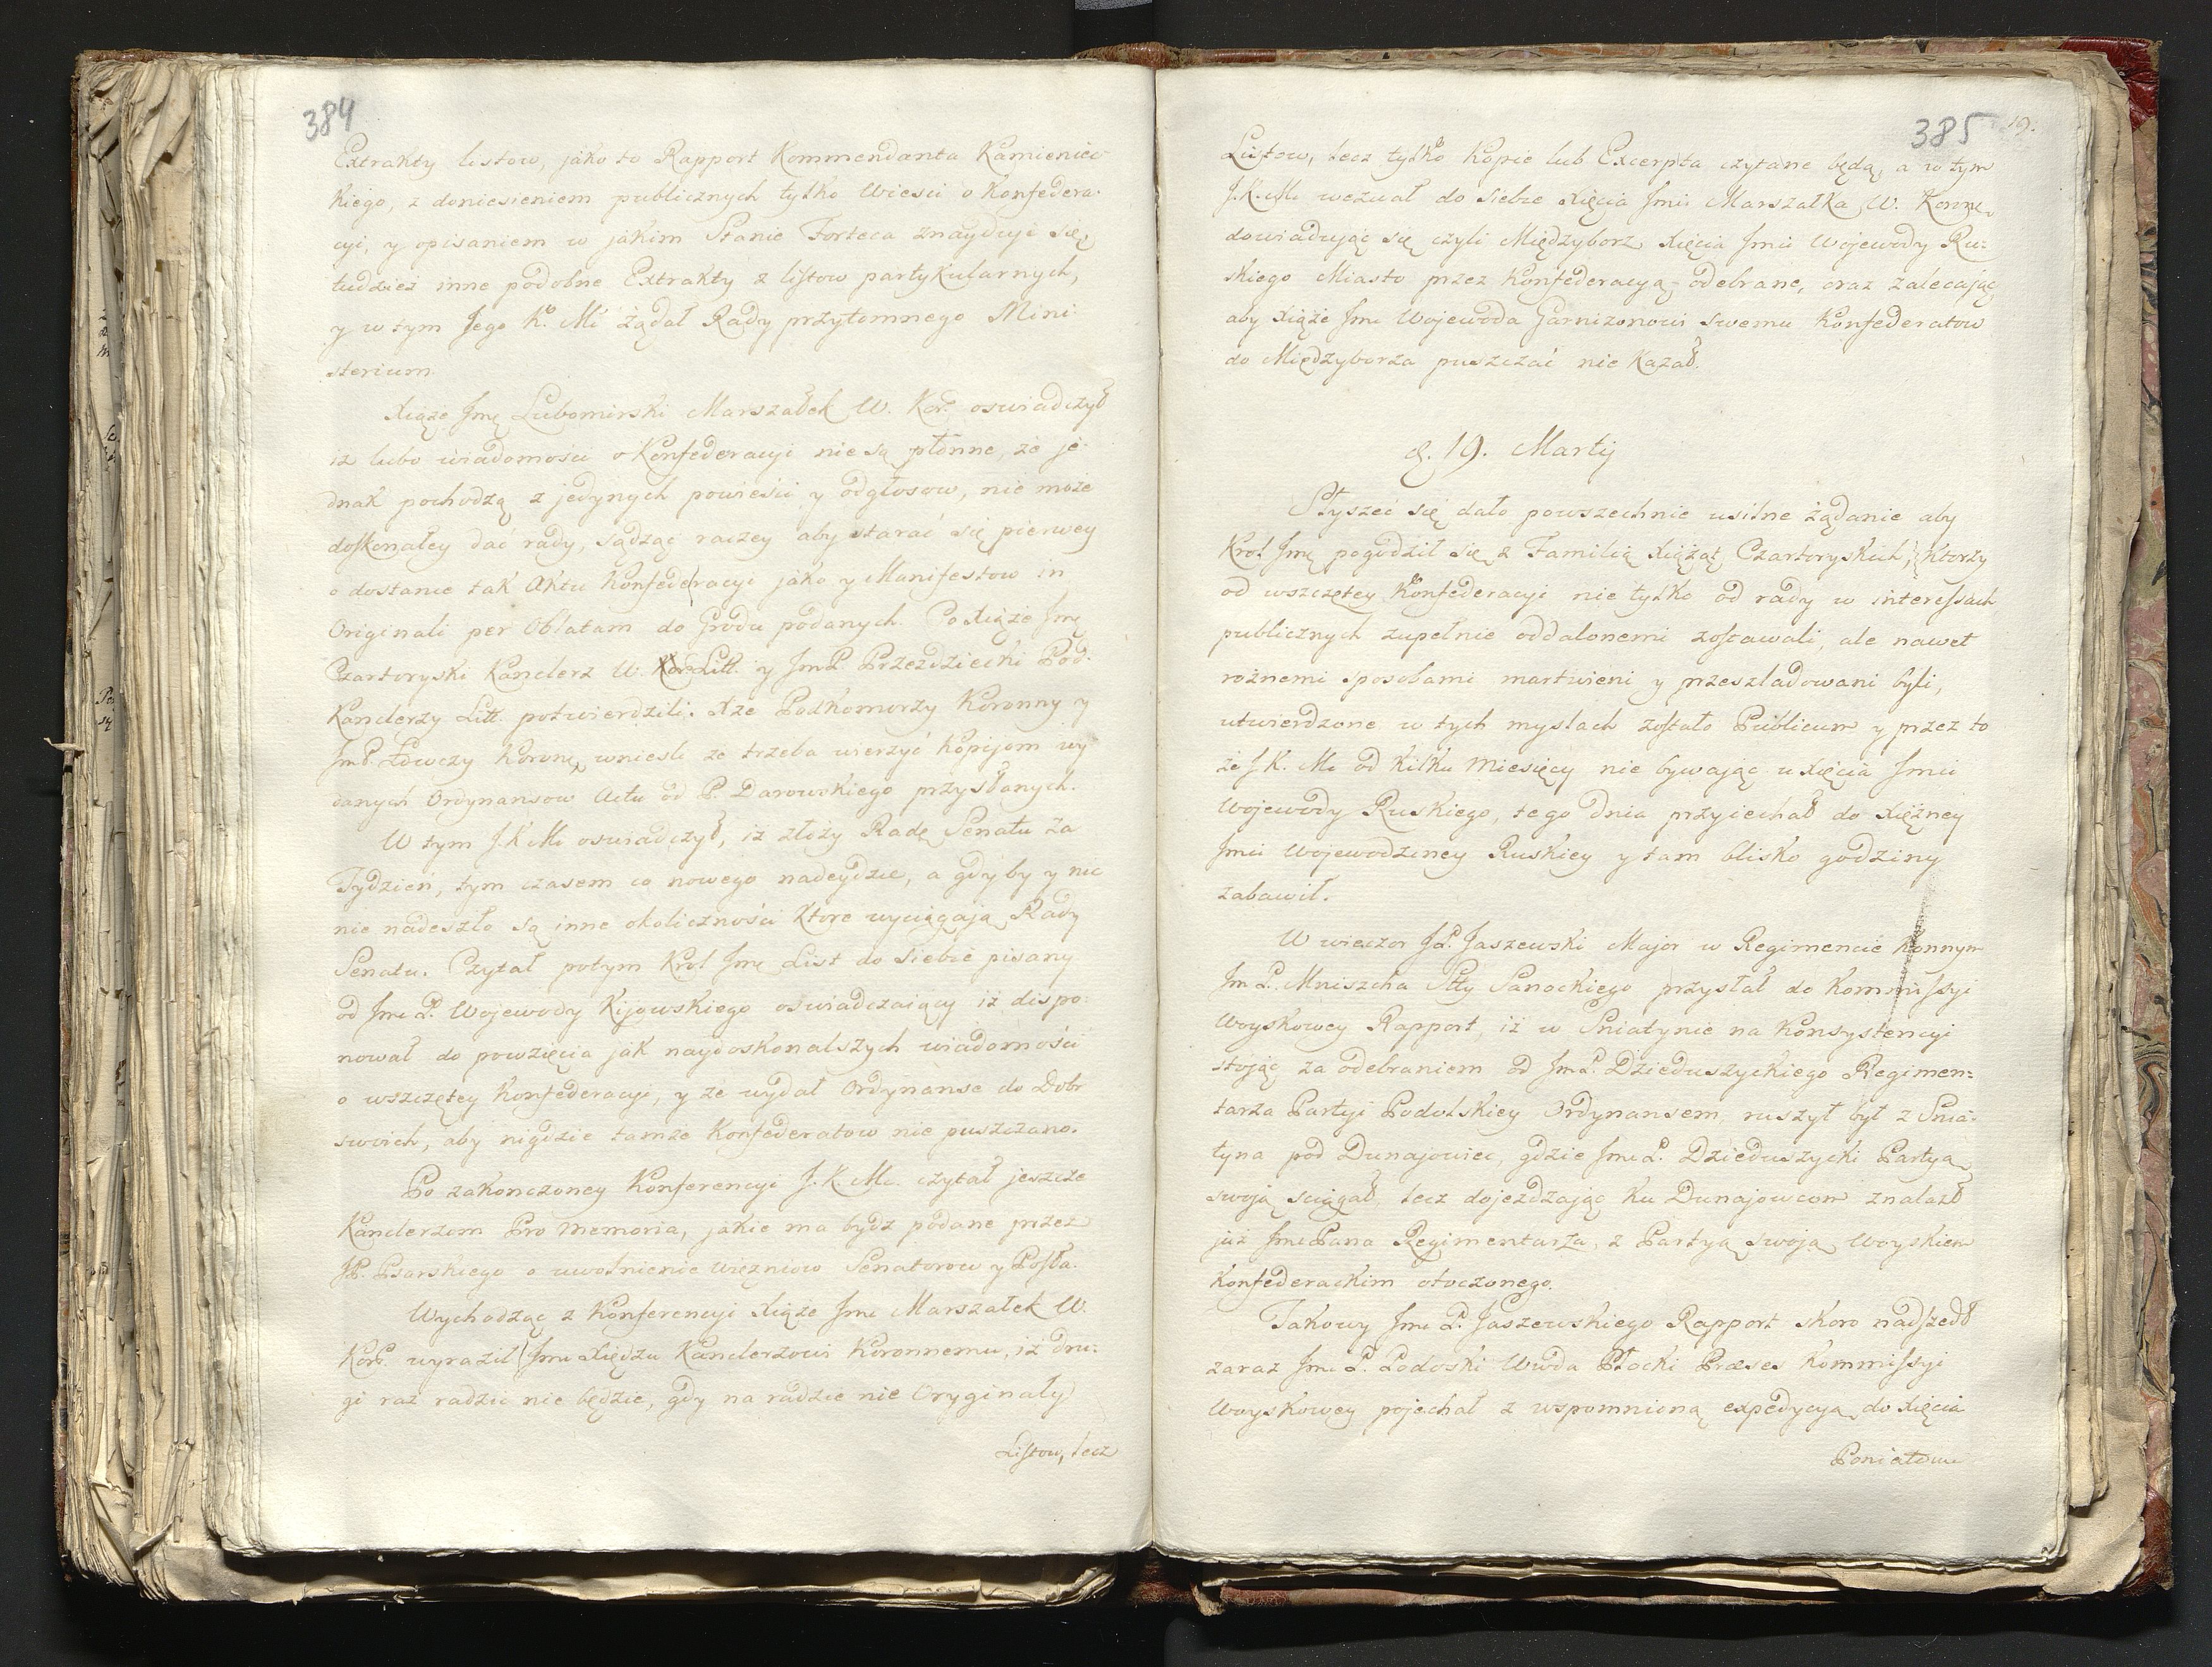 384
Extrakty listow, jako to Rapport Kommendanta Kamieniec-
kiego, z doniesieniem publicznych tylko wiesci o Konfedera-
cyi, y opisaniem w jakim Stanie Forteca znayduje się,
tudzież inne podobne Extrakty z listow partykularnych,
y w tym Jego K. Mć żądał Rady przytomnego Mini-
sterium.
Xiąże Jmę Lubomirski Marszałek W. Kor. oswiadczył
iż lubo wiadomości o Konfederacyi nie są płonne, że je-
dnak pochodzą z jedynych powieści y odgłosow, nie może
doskonałey dać rady, sądząc raczey aby starać się pierwey
o dostanie tak Aktu Konfederacyi jako y Manifestow in
Originali per Oblatam do Grodu podanych. Po Xiąże Jmę
Czartoryski Kanclerz W. Litt. y JmP. Przezdziecki Pod-
Kanclerzy Litt. potwierdzili. Xże Podkomorzy Koronny y
JmP. Łowczy Koronn. wniesli że trzeba wierzyć kopijom wy-
danych Ordynansow Actu od P. Darowskiego przysłanych.
W tym J.K.Mć oswiadczył, iż złoży Radę Senatu za
Tydzień, tym czasem co nowego nadeydzie, a gdyby y nic
nie nadeszło są inne okoliczności ktore wyciągają Rady
Senatu. Czytał potym Krol Jmę List do siebie pisany
od Jmć P. Wojewody Kijowskiego oswiadczaiący iż dispo-
nował do powzięcia jak naydoskonalszych wiadomości
o wszczętey Konfederacyi, y że wydał Ordynanse do Dobr
swoich, aby nigdzie tamże Konfederatow nie puszczano.
Po zakonczoney Konferencyi J.K.Mć. czytał jeszcze
Kanclerzom Pro memoria, jakie ma bydz podane przez
JP. Psarskiego o uwolnienie więzniow Senatorow y Posła.
Wychodząc z Konferencyi Xiąże Jmć Marszałek W.
Kor. wyraził Jmć Xiędzu Kanclerzowi Koronnemu, iż dru-
gi raz radzić nie będzie, gdy na radzie nie Oryginały
Listow, lecz
385 19.
Listow, lecz tylko kopie lub Excerpta czytane będą, a w tym
J.K.Mć wezwał do siebie Xięcia Jmci Marszałka W. Koron.
dowiadując się czyli Międzyborz Xięcia Jmci Wojewody Ru-
skiego Miasto przez Konfederacyą odebrane, oraz zalecając
aby Xiąże Jmć Wojewoda Garnizonowi swemu Konfederatow
do Międzyborza puszczać nie kazał.
d. 19. Martij
Słyszeć się dało powszechnie usilne żądanie aby
Krol Jmę pogodził się z Familią Xiążąt Czartoryskich, ktorzy
od wszczętey Konfederacyi nie tylko od rady w interessach
publicznych zupełnie oddalonemi zostawali, ale nawet
rożnemi sposobami martwieni y przesladowani byli,
utwierdzone w tych myslach zostało Publicum y przez to
że J.K.Mć od kilku miesięcy nie bywając u Xięcia Jmci
Wojewody Ruskiego, tego dnia przyiechał do Xiężney
Jmci Wojewodziney Ruskiey y tam blisko godziny
zabawił.
W wieczor JP. Jaszewski Major w Regimencie konnym
Jm P. Mniszcha Stty Sanockiego przysłał do Kommissyi
Woyskowey Rapport, iż w Sniatynie na Konsystencyi
stojąc za odebraniem od JmP. Dzieduszyckiego Regimen-
tarza Partyi Podolskiey Ordynansem ruszył był z Snia-
tyna pod Dunajowiec, gdzie Jmć P. Dzieduszycki Partyą
swoją sciągał, lecz dojezdzając ku Dunajowcom znalazł
już Jmć Pana Regimentarza z Partyą swoją Woyskiem
Konfederackim otoczonego.
Takowy Jmć P. Jaszewskiego Rapport skoro nadszedł
zaraz Jmć P. Podoski Wwda Płocki Præses Kommissyi
Woyskowey pojechał z wspomnioną expedycyą do Xięcia
Poniatow